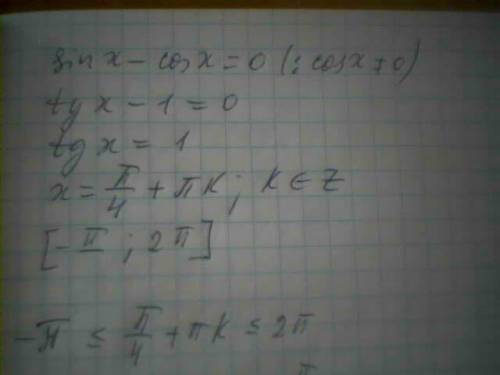 sin x - cos x = 0 (: cos x ≠ 0)
tg x - 1 = 0
tg x = 1
x = π/4 + πK; K ∈ Z
[-π; 2π]
-π ≤ π/4 + πK ≤ 2π
π